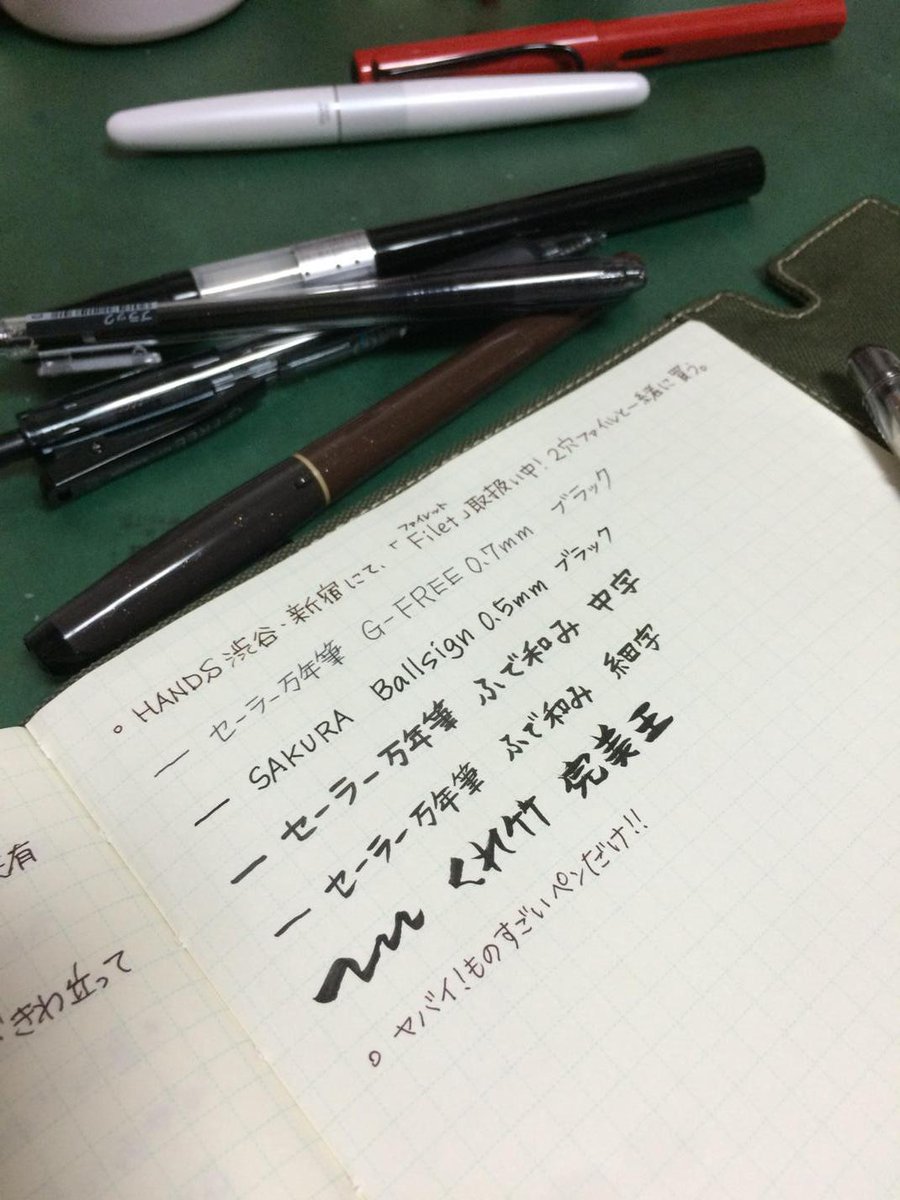 ブラック
ファイレット
○ HANDS 渋谷、新宿にて、「Filet」取扱い中！2穴ファイルと一緒に買う。
— セーラー万年筆 G-FREE 0.7mm ブラック
— SAKURA Ballsign 0.5mm ブラック
— セーラー万年筆 ふで和み 中字
— セーラー万年筆 ふで和み 細字
くれ竹 完美王
○ ヤバイ！ものすごいペンだけ!!
有
きわ立って